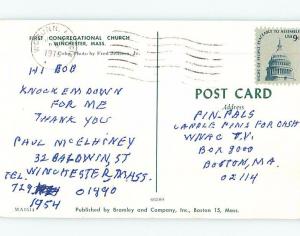 FIRST CONGREGATIONAL CHURCH
WINCHESTER, MASS.
Color Photo by Fred
HI BOB
KNOCK EM DOWN
FOR ME
THANK YOU
PAUL MCELHINEY
32 BALDWIN, ST
WINCHESTER, MASS.
TEL. 01890
729
1954
RIGHT OF PEOPLE PEACEABLY TO ASSEMBLE
USA 9c
POST CARD
Address
PIN-PALS
CANDLE PINS FOR CASH
WNAC T.V.
BOX 8000
BOSTON, MA.
02114
WA1514
60285
Published by Bromley and Company, Inc., Boston 15, Mass.